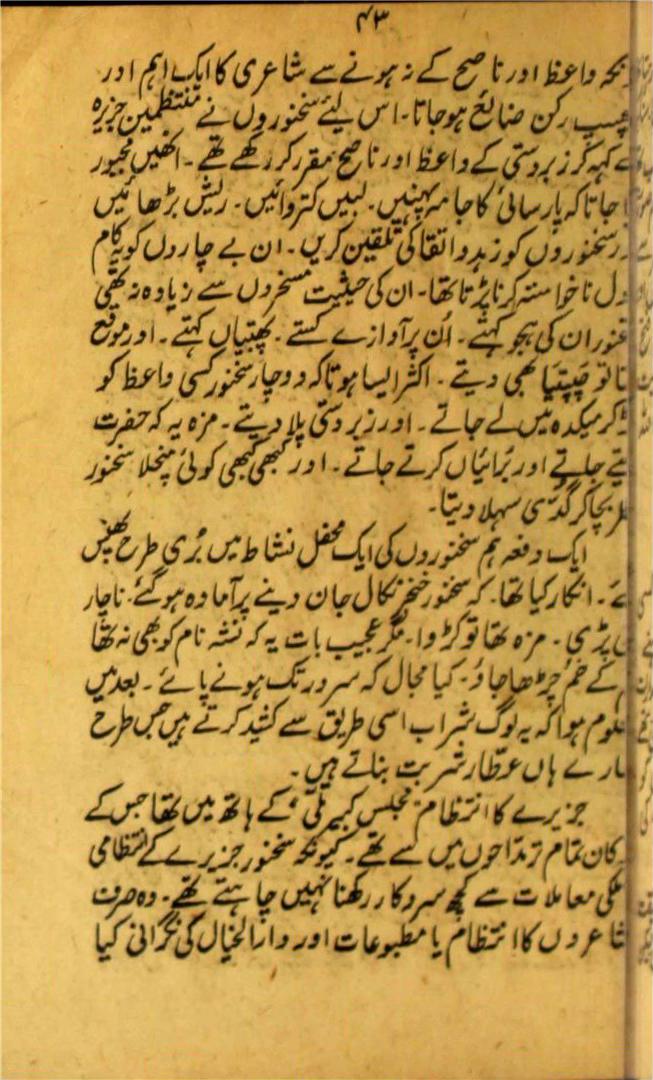 ۴۳
واعظ اور ناصح کے نہ ہونے سے شاعری کا ایک اہم اور
رکن ضائع ہو جاتا۔ اس لئے سخنوروں نے منتظمین جزیرہ
کہہ کر زبردستی کے واعظ اور ناصح مقرر کر رکھے تھے۔ انھیں مجبور
جاتا کہ پارسائی کا جامہ پہنیں۔ لبیں کتروائیں۔ ریش بڑھائیں
سخنوروں کو زہد و اتقا کی تلقین کریں۔ ان بے چاروں کو یہ کام
دل ناخواستہ کرنا پڑتا تھا۔ ان کی حیثیت مسخروں سے زیادہ نہ تھی
ان کی ہجو کہتے۔ اُن پر آوازے کستے۔ پھبتیاں کہتے۔ اور موقع
تو چپتیا بھی دیتے۔ اکثر ایسا ہوتا کہ دو چار سخنور کسی واعظ کو
کر میکدہ میں لے جاتے۔ اور زبردستی پلا دیتے۔ مزہ یہ کہ حضرت
جاتے اور برائیاں کرتے جاتے۔ اور کبھی کبھی کوئی منچلا سخنور
بچا کر گدّی سہلا دیتا۔
ایک دفعہ ہم سخنوروں کی ایک محفل نشاط میں بُری طرح پھنس
انکار کیا تھا۔ کہ سخنور خنجر نکال جان دینے پر آمادہ ہو گئے۔ ناچار
پڑی۔ مزہ تھا تو کڑوا۔ مگر عجیب بات یہ کہ نشہ نام کو بھی نہ تھا
کے خم چڑھا جاؤ۔ کیا مجال کہ سرور تک ہونے پائے۔ بعد میں
ہوا کہ یہ لوگ شراب اسی طریق سے کشید کرتے ہیں جس طرح
ہاں عطّار شربت بناتے ہیں۔
جزیرے کا انتظام "مجلس کبیر ملّی" کے ہاتھ میں تھا جس کے
تمام تر مدّاحوں میں سے تھے۔ کیونکہ سخنور جزیرے کے انتظامی
معاملات سے کچھ سروکار رکھنا نہیں چاہتے تھے۔ وہ صرف
کا انتظام یا مطبوعات اور دارالخیال کی نگرانی کیا